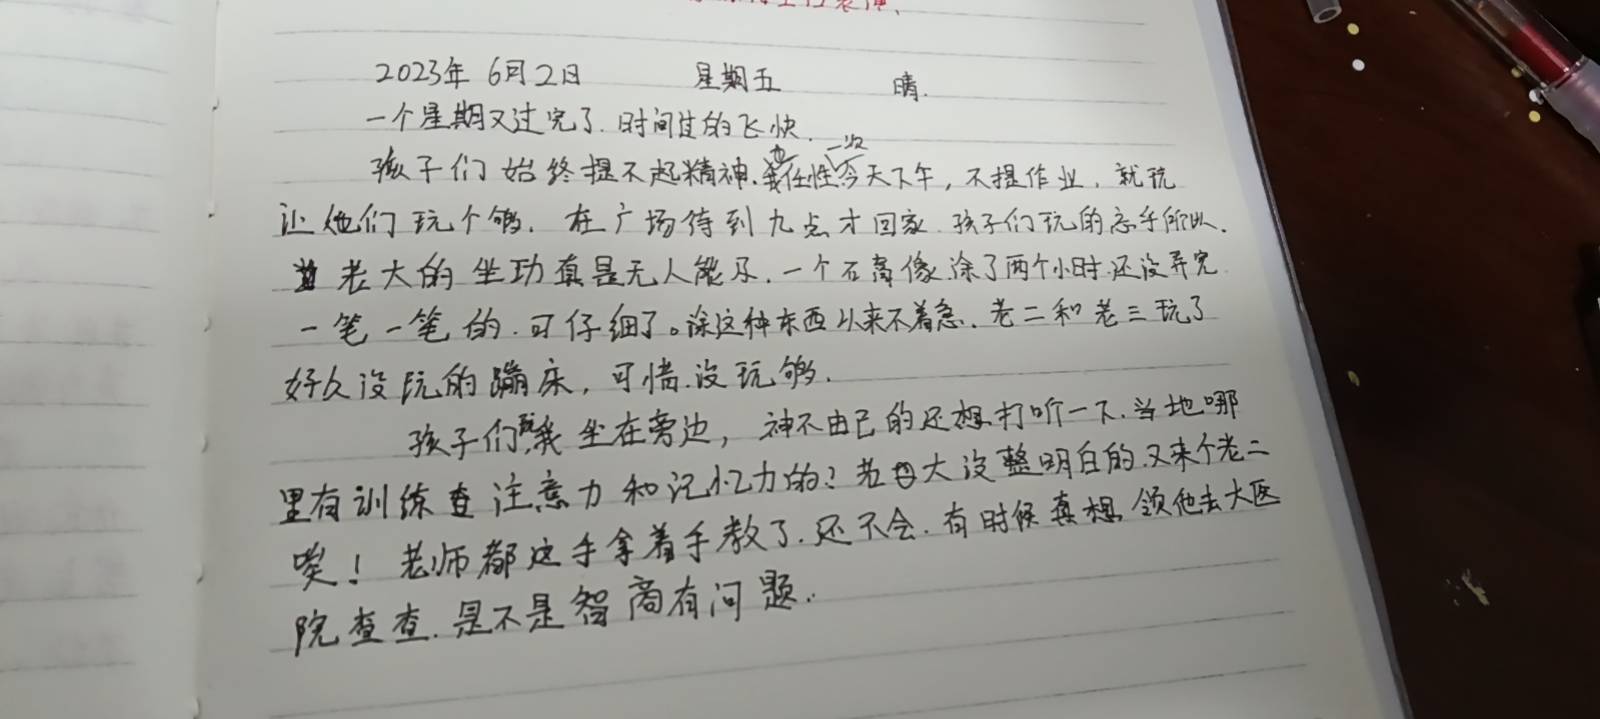 2023年 6月2日 星期五 晴.
一个星期又过完了.时间过的飞快.
孩子们始终提不起精神.我也任性一次今天下午,不提作业.就玩
让他们玩个够.在广场待到九点才回家.孩子们玩的忘乎所以.
老大的坐功真是无人能及.一个石膏像涂了两个小时.还没弄完
一笔一笔的.可仔细了。涂这种东西以来不着急.老二和老三玩了
好久没玩的蹦床,可惜.没玩够.
孩子们玩,我坐在旁边,神不由己的还想打听一下.当地哪
里有训练注意力和记忆力的?老大没整明白的.又来个老二
唉!老师都这手拿着手教了.还不会.有时候真想领他去大医
院查查.是不是智商有问题.